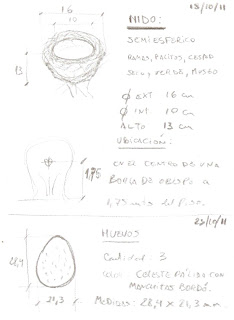 13/10/11
16
NIDO:
10
SEMIESFERICO
RAMAS, PALITOS, CESPED
SECO, Y VERDE, MUSGO
13
Ø EXT 16 cm
Ø INT 10 cm
ALTO 13 cm
UBICACIÓN:
EN EL CENTRO DE UNA
DE OBISPO A
1,75
1,75 mts DEL PISO.
23/10/11
HUEVOS
Cantidad 3
28,4
COLOR: CELESTE PÁLIDO CON
MANCHITAS BORDÓ.
21,3
MEDIDAS: 28,4 x 21,3 mm.